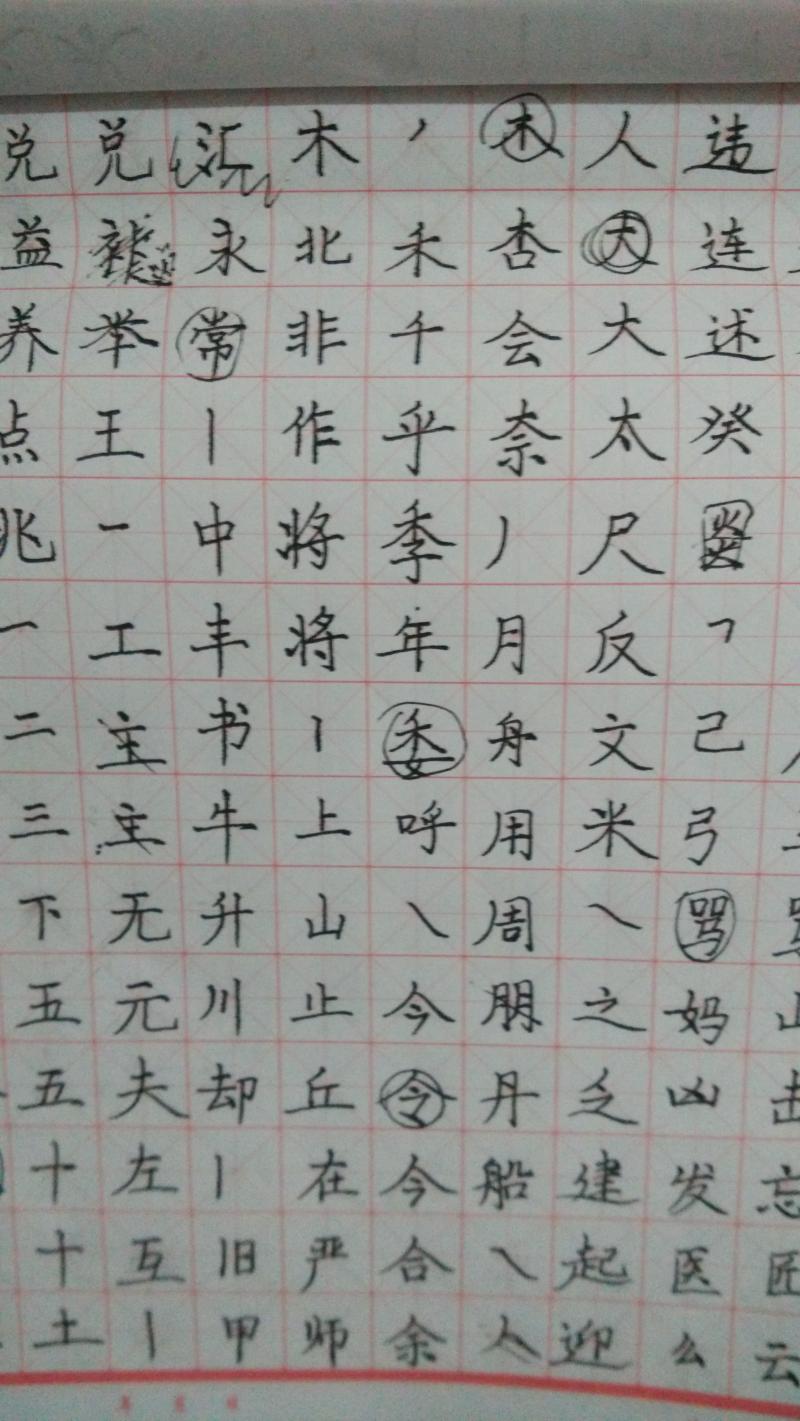 兑益养点兆一二三下五五十十土
兑举王一工主主无元夫左互丨
汇永常丨中丰书牛升川却丨旧甲
木北非作将将丨上山止丘在严师
丿禾千乎季年委呼㇏今令今合余
木杏会奈丿月舟用周朋丹船㇏人
人大大太尺反文米㇏之乏建起迎
违连述癸㇕己弓骂妈凶发医么
击忘匠云